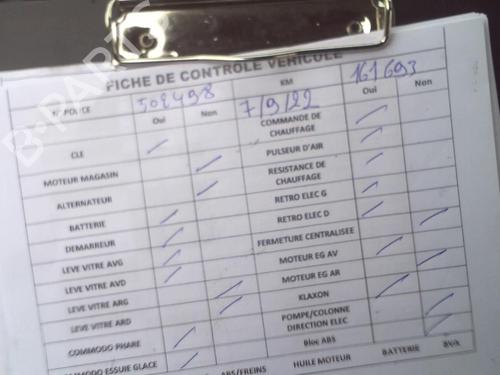 FICHE DE CONTROLE VEHICULE
N° POLICE 502498 KM 161693
Oui Non 7/9/22 Oui Non
CLE COMMANDE DE CHAUFFAGE
MOTEUR MAGASIN PULSEUR D'AIR
ALTERNATEUR RESISTANCE DE CHAUFFAGE
BATTERIE RETRO ELEC G
DEMARREUR RETRO ELEC D
LEVE VITRE AVG FERMETURE CENTRALISEE
LEVE VITRE AVD MOTEUR EG AV
LEVE VITRE ARG MOTEUR EG AR
LEVE VITRE ARD KLAXON
COMMODO PHARE POMPE/COLONNE DIRECTION ELEC
COMMODO ESSUIE GLACE Bloc ABS
ABS/FREINS HUILE MOTEUR BATTERIE
B-PARTS